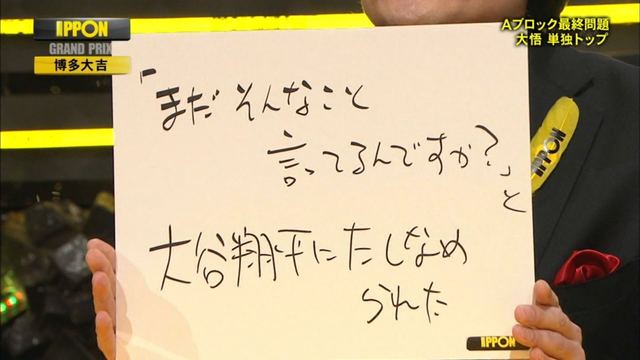 IPPON
GRAND PRIX
博多大吉
Aブロック最終問題
大悟 単独トップ
「まだ そんなこと
言ってるんですか?」と
大谷翔平にたしなめ
られた
IPPON
IPPON